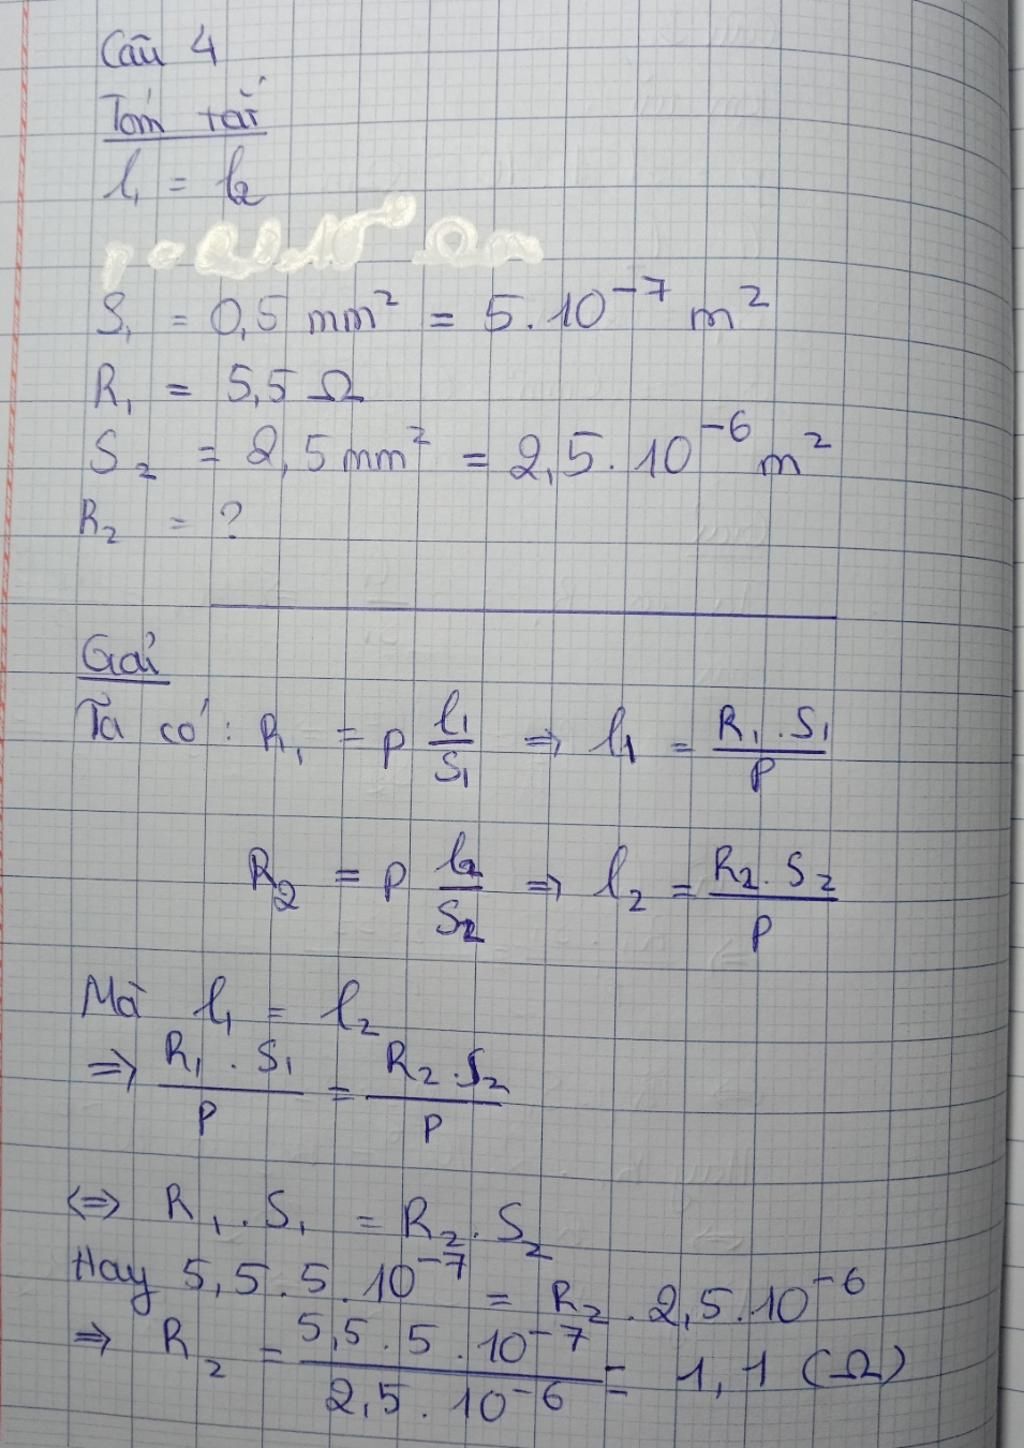 Câu 4
Tóm tắt
l₁ = l₂
S₁ = 0,5 mm² = 5.10⁻⁷ m²
R₁ = 5,5 Ω
S₂ = 2,5 mm² = 2,5.10⁻⁶ m²
R₂ = ?
Gải
Ta có: R₁ = p l₁/S₁ => l₁ = R₁.S₁/p
R₂ = p l₂/S₂ => l₂ = R₂.S₂/p
Mà l₁ = l₂
=> R₁.S₁/p = R₂.S₂/p
<=> R₁.S₁ = R₂.S₂
Hay 5,5.5.10⁻⁷ = R₂.2,5.10⁻⁶
=> R₂ = 5,5.5.10⁻⁷/2,5.10⁻⁶ = 1,1 (Ω)